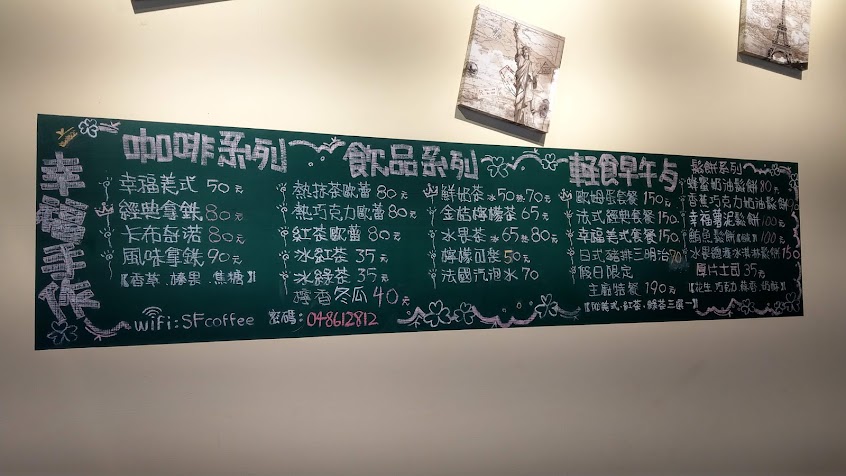 幸福手作
咖啡系列
幸福美式 50元
經典拿鐵 80元
卡布奇諾 80元
風味拿鐵 90元
【香草.榛果.焦糖】
WiFi:SFcoffee 密碼:048612812
飲品系列
熱抹茶歐蕾 80元
熱巧克力歐蕾 80元
紅茶歐蕾 80元
冰紅茶 35元
冰綠茶 35元
檸香冬瓜 40元
鮮奶茶 冰50熱70元
金桔檸檬茶 65元
水果茶 冰65熱80元
檸檬可樂 50元
法國汽泡水 70元
輕食早午
歐姆蛋套餐 150元
法式經典套餐 150元
幸福美式套餐 150元
日式豬排三明治 70
假日限定
主廚特餐 190元
美式.紅茶.綠茶三選一】
鬆餅系列
蜂蜜奶油鬆餅 80元
香蕉巧克力奶油鬆餅
幸福薯泥鬆餅 100元
鮪魚鬆餅 100元
水果總匯冰淇淋鬆餅 150
厚片土司 35元
【花生.巧克力.蒜香.奶酥】